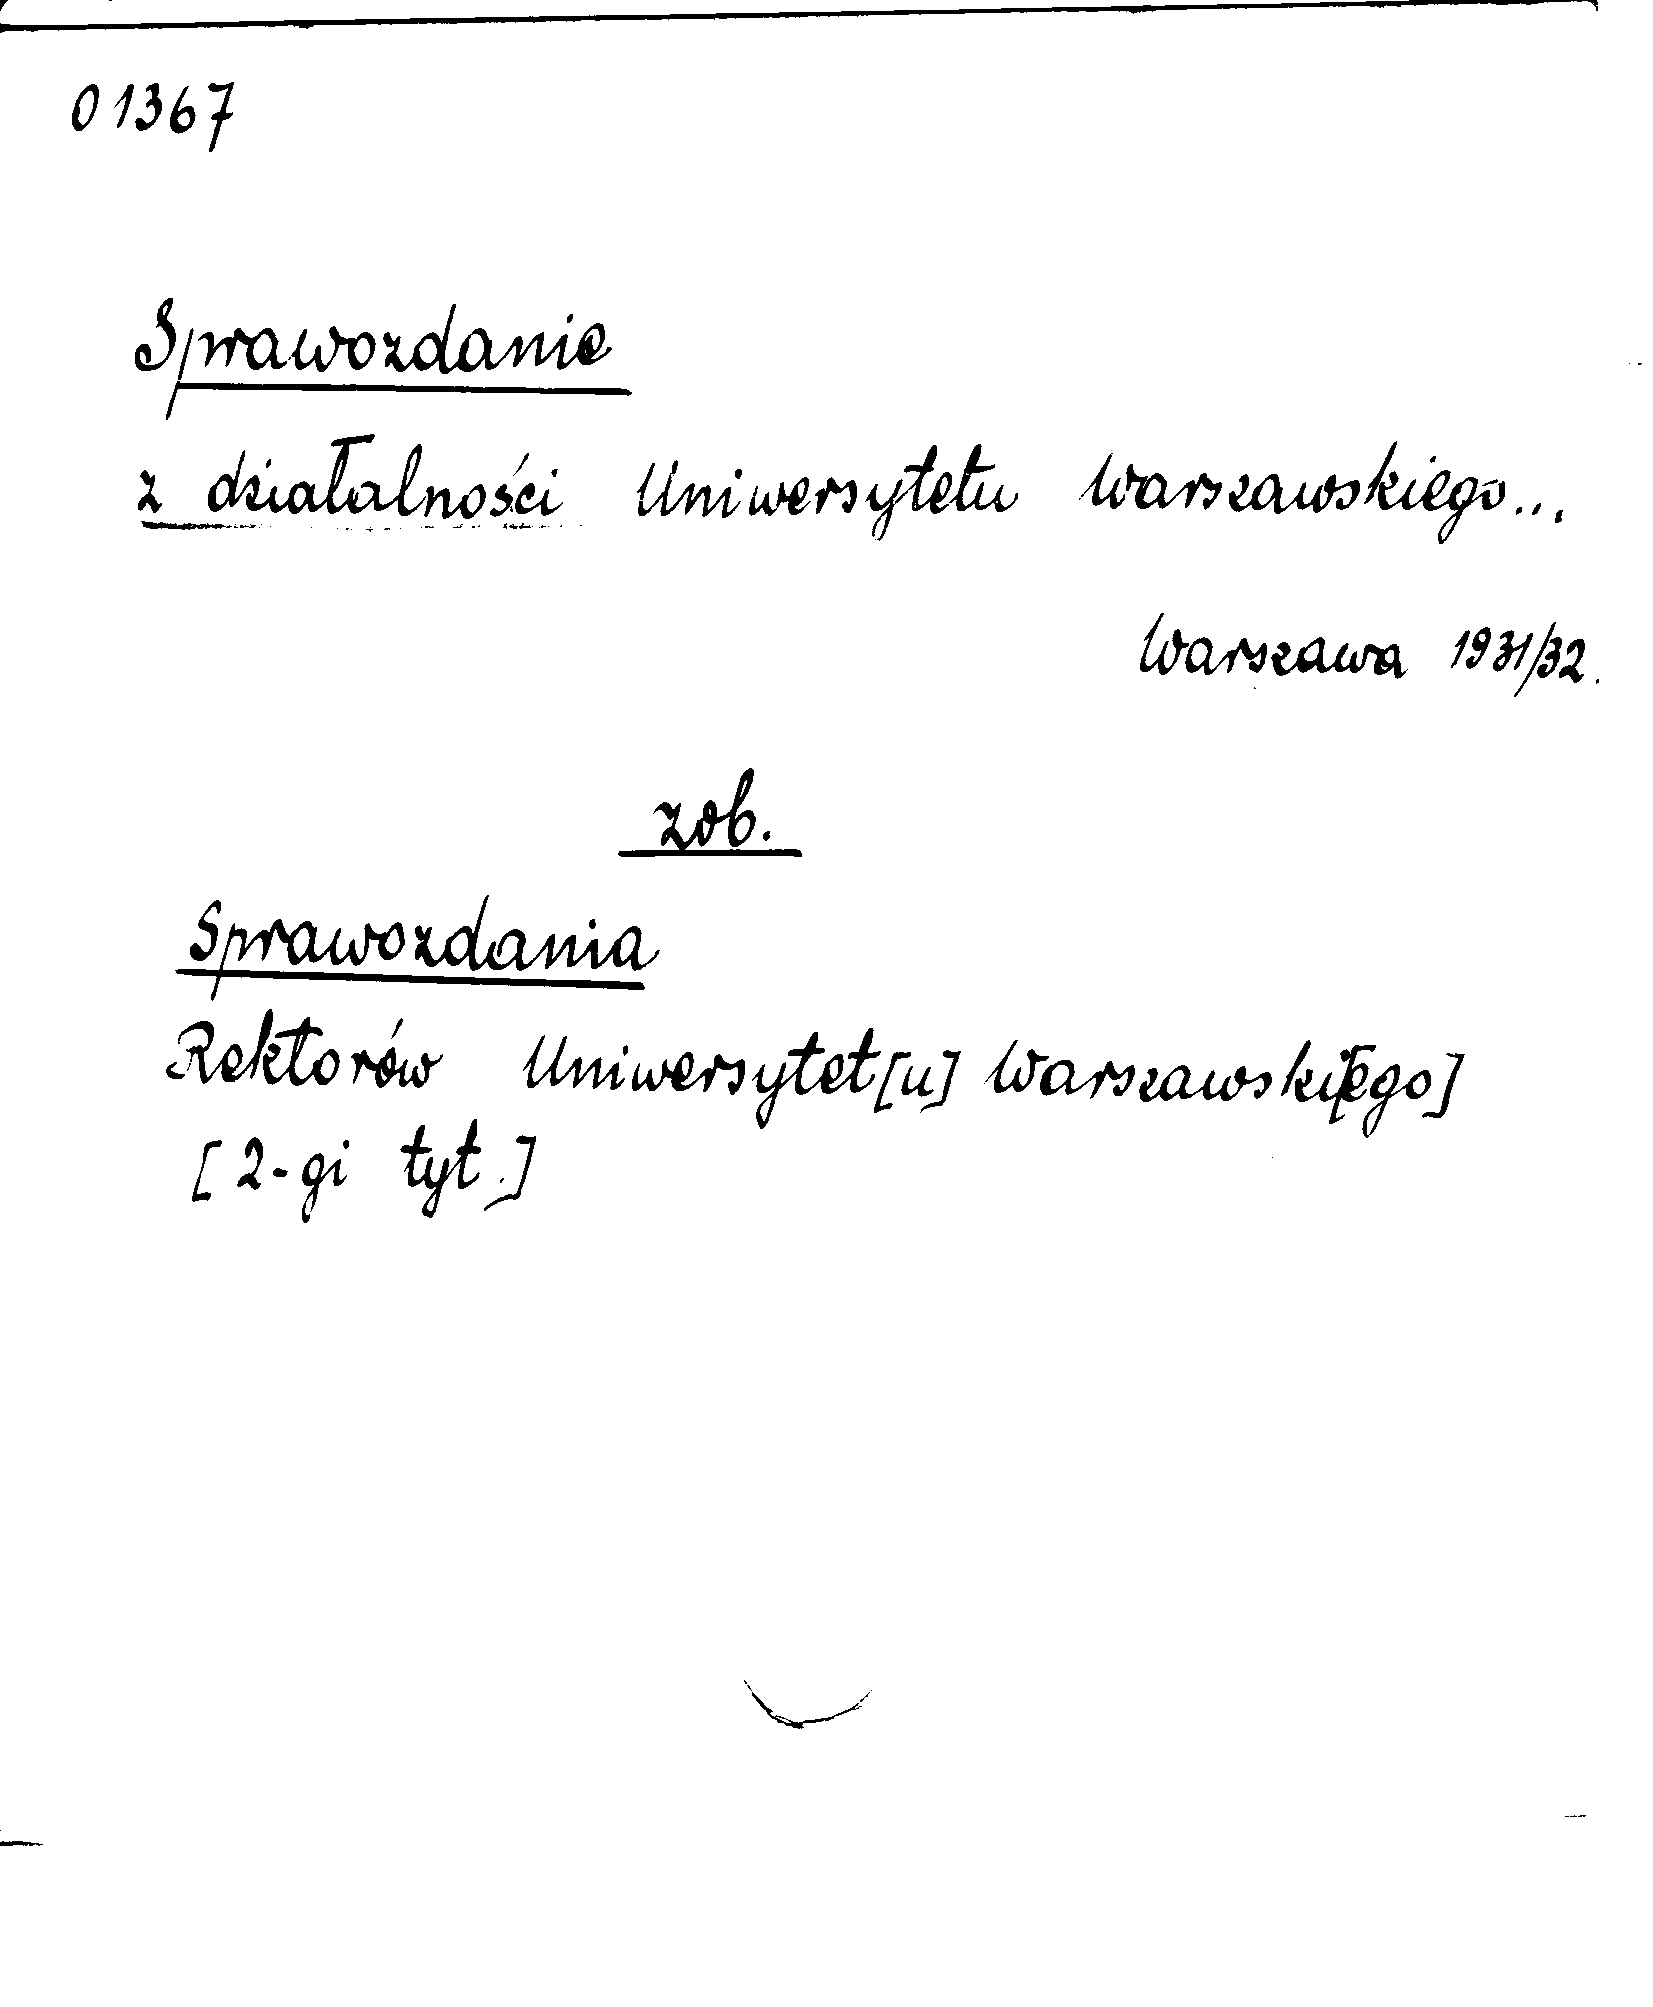 01367
Sprawozdanie
z działalności Uniwersytetu Warszawskiego...
Warszawa 1931/32.
zob.
Sprawozdania
Rektorów Uniwersytet[u] Warszawski[ego]
[2-gi tyt.]